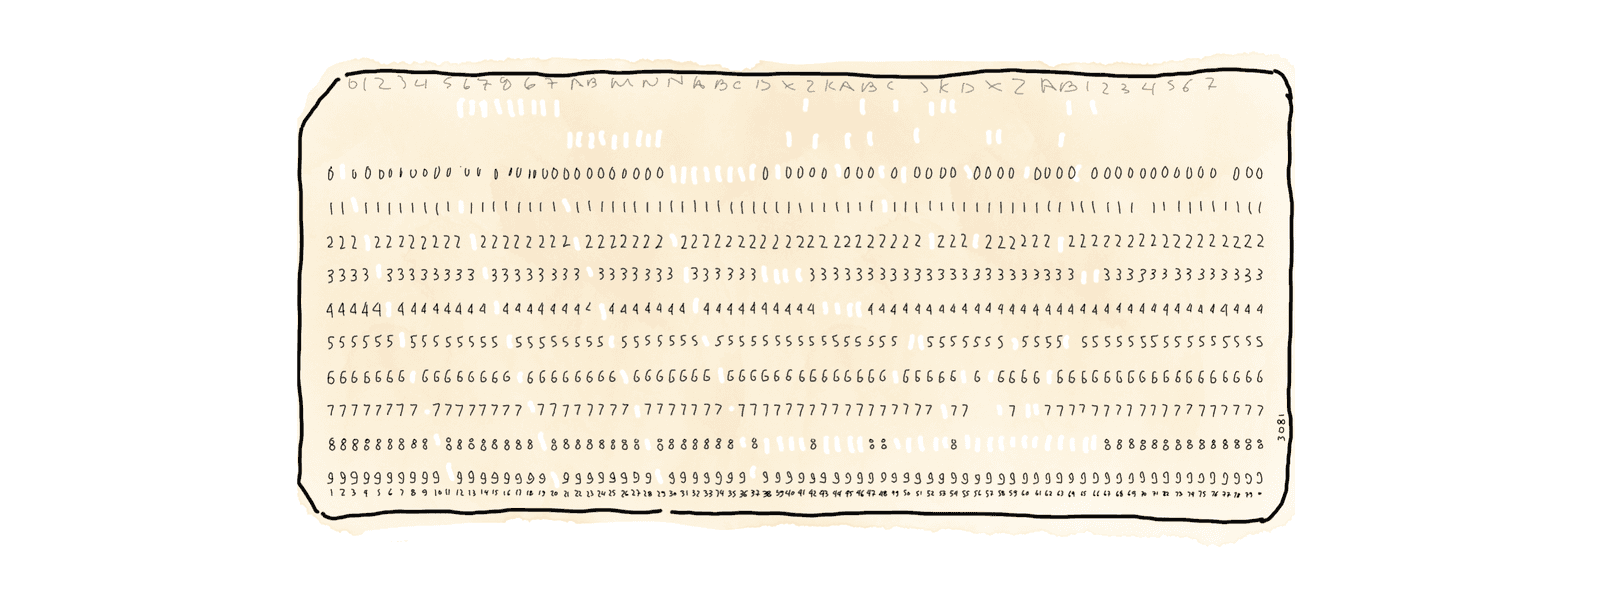 0 1 2 3 4 5 6 7 8 6 7 A B M N N A B C D X Z K A B C J K D X Z A B 1 2 3 4 5 6 7
0 000000000000000000000000000 0 0000 000 0 0000 0000 0000 00000000000 000
11 11111111 11111111 11111111111111111111111111 111111111111111111111 1111111111
222 22222222 22222222 2222222 222222222222222222222 222 222222 22222222222222222
3333 33333333 33333333 3333333 333333 33333333333333333333333 33333333333333
44444 44444444 44444444 4444444 4444444444 4444444444444444444444444444444444
555555 55555555 55555555 5555555 5555555555555555 5555555 5555 5555555555555555
6666666 66666666 66666666 6666666 66666666666666 66666 6 6666 666666666666666666
77777777 77777777 77777777 7777777 77777777777777777 77 7 7777777777777777777
888888888 88888888 88888888 8888888 8 8 88 8 88888888888888
9999999999 99999999 99999999 9999999 9999999999999999999999999999999999999999999
1 2 3 4 5 6 7 8 9 10 11 12 13 14 15 16 17 18 19 20 21 22 23 24 25 26 27 28 29 30 31 32 33 34 35 36 37 38 39 40 41 42 43 44 45 46 47 48 49 50 51 52 53 54 55 56 57 58 59 60 61 62 63 64 65 66 67 68 69 70 71 72 73 74 75 76 77 78 79
3081